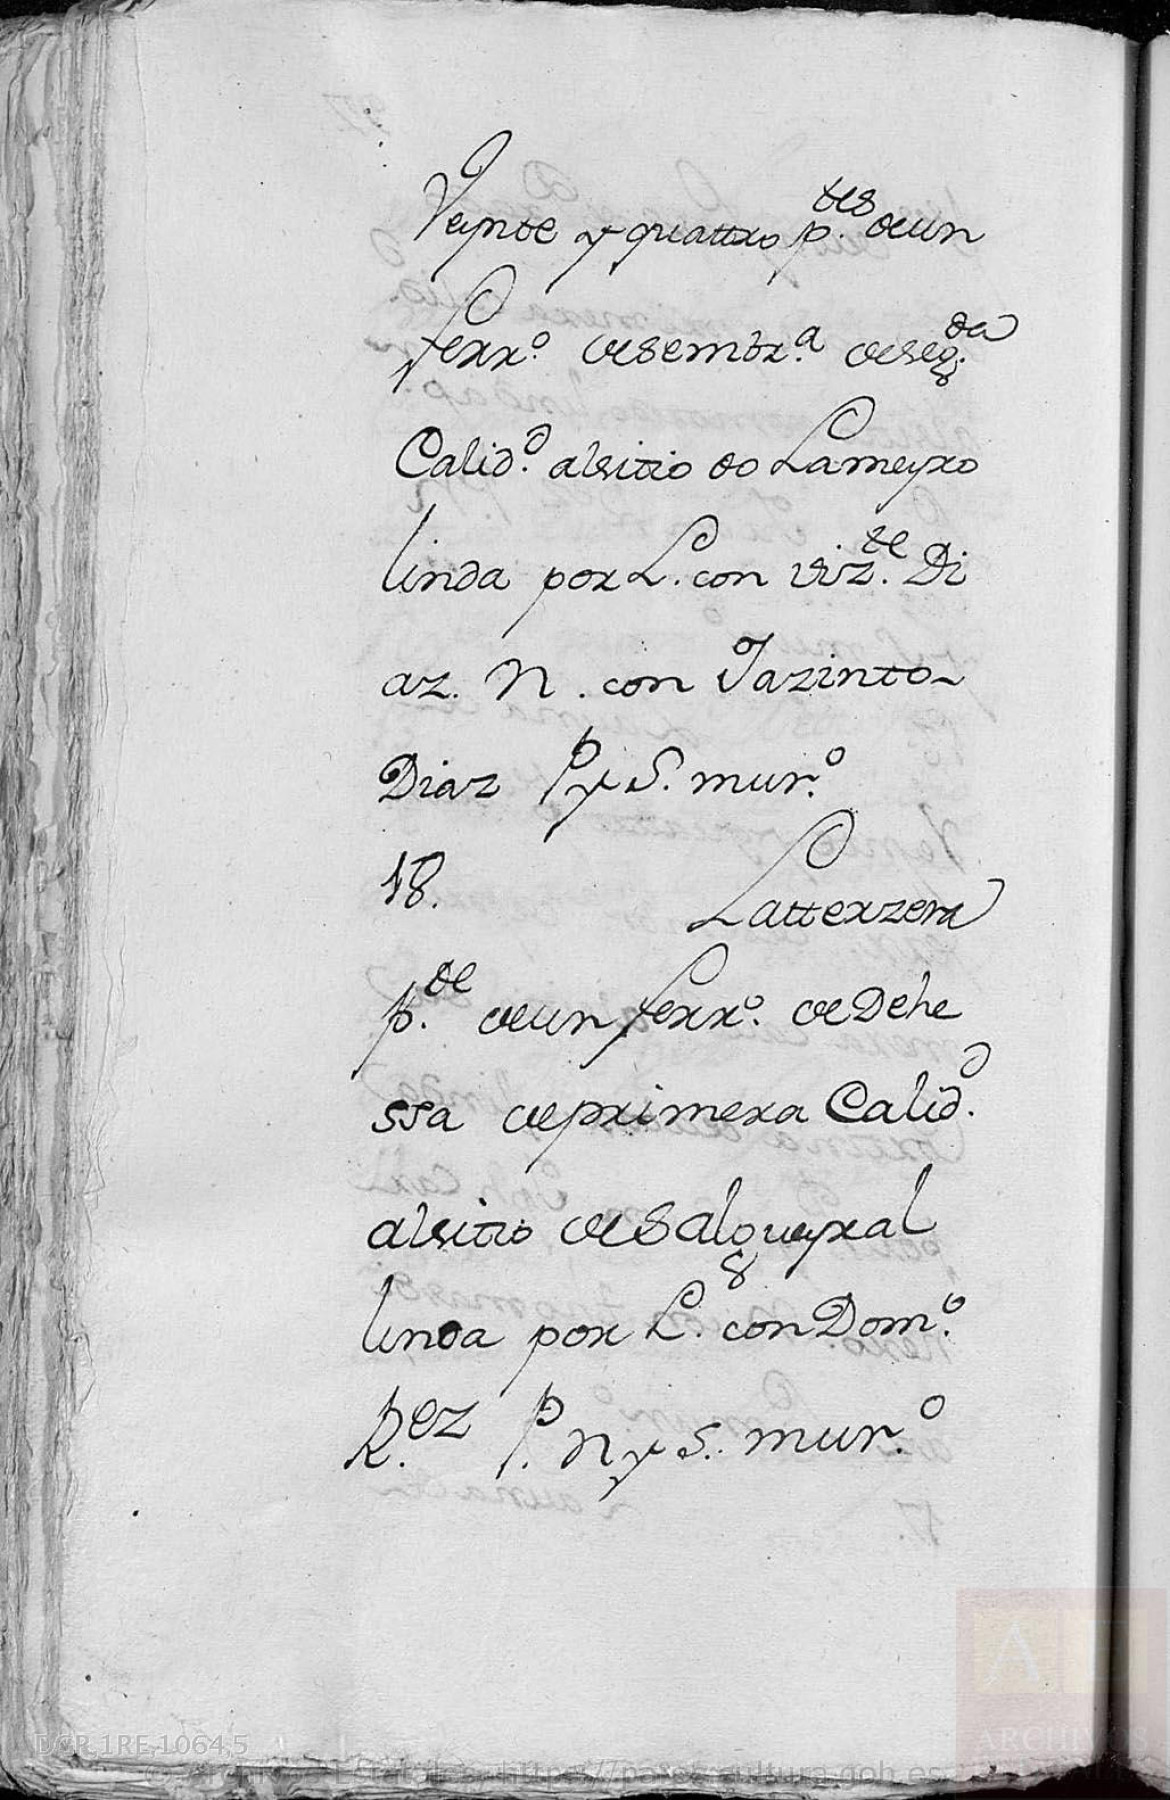 Veynte y quattro p.tes de un
ferr.o de sembr.a de seg.da
Calid.d al sitio do Lameyro
linda por L. con Viz.te Di
az. N. con Jazinto
Diaz P y S. mur.o
18. La tterzera
p.te de un ferr.o de Dehe
ssa de primera Calid.d
al sitio de Salgueyral
linda por L. con Dom.o
R.ez P. N y S. mur.o
DGR,1RE,1064,5
ARCHIVOS